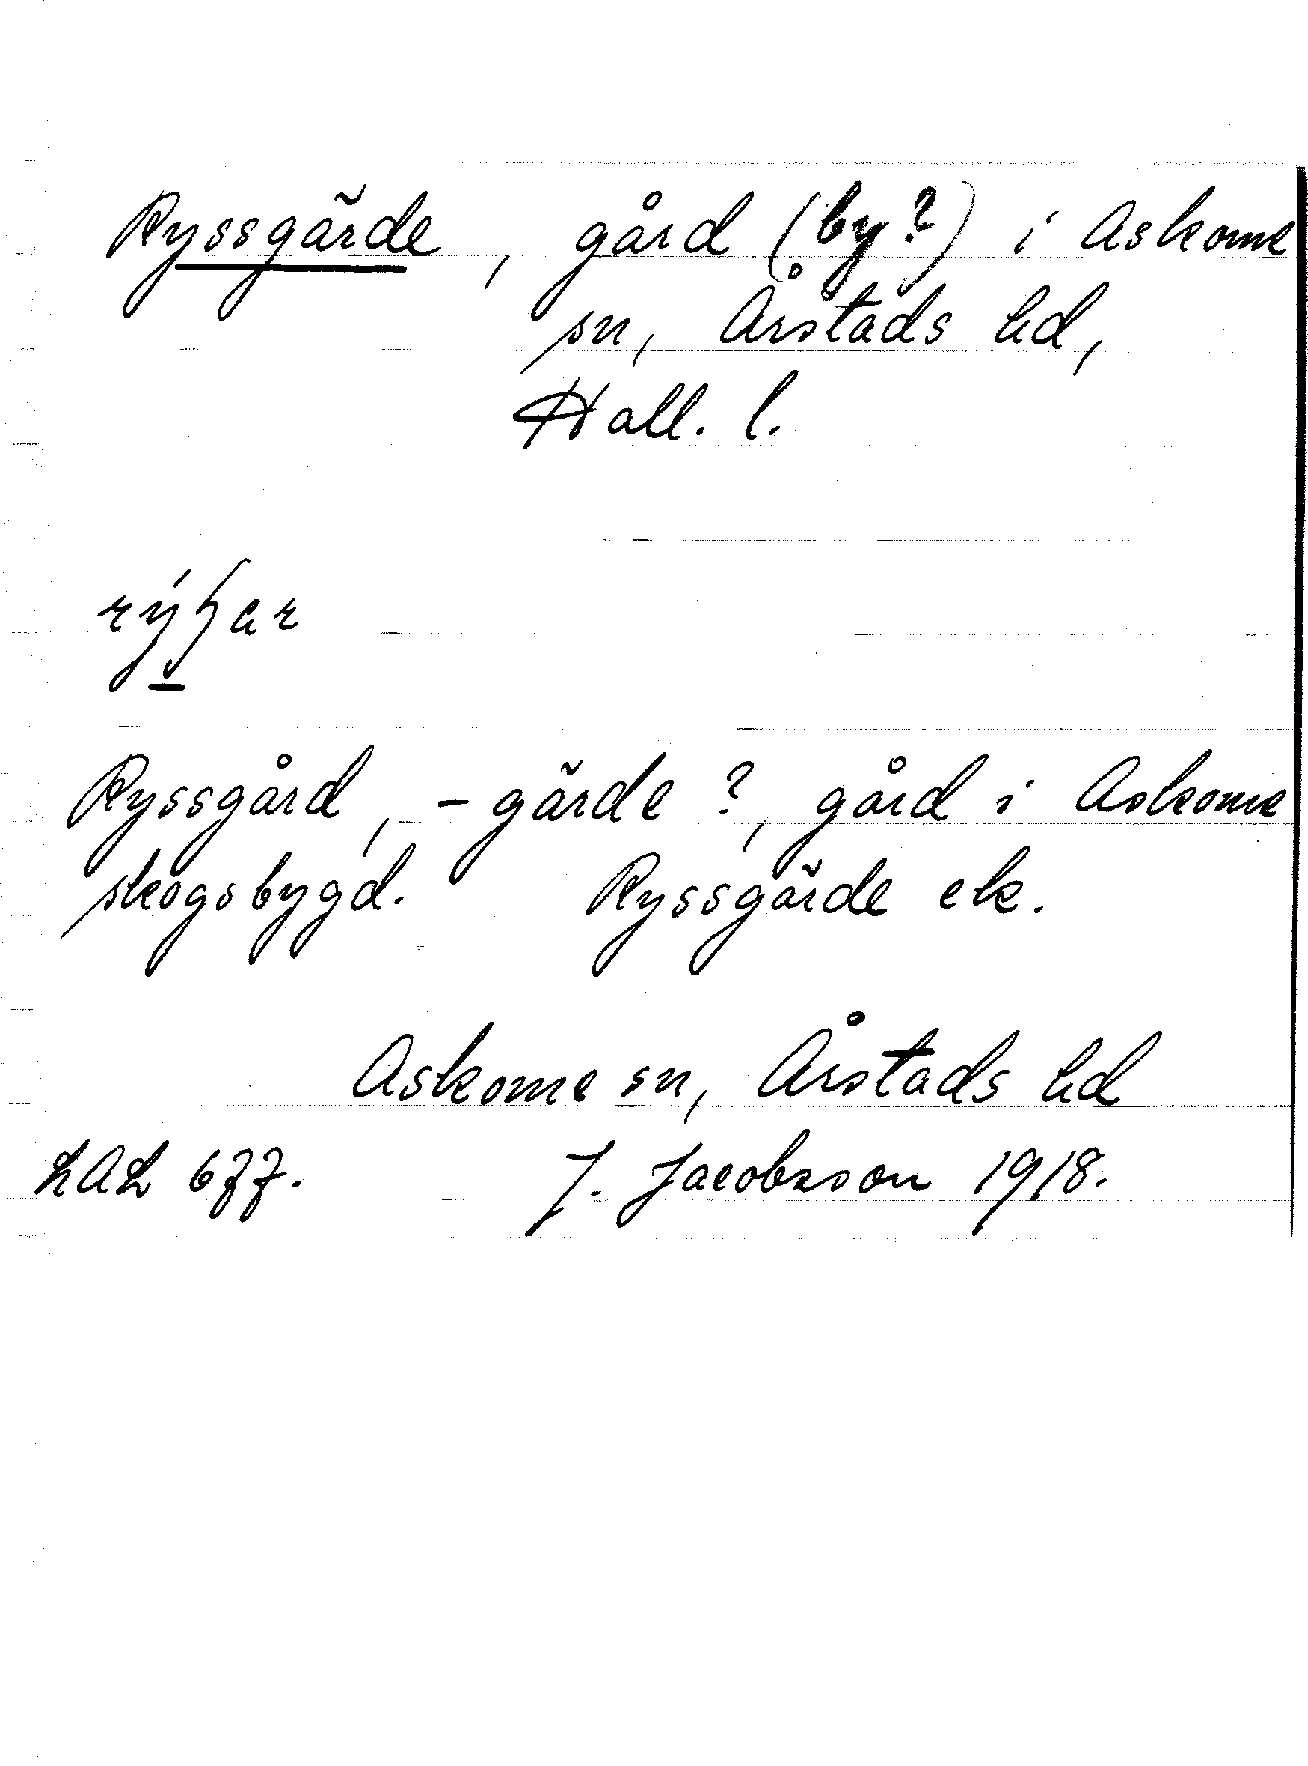 Ryssgärde, gård (by?) i Askome
sn, Årstads hd,
Hall. l.
Ryssgård, -gärde?, gård i Askome
skogsbygd. Ryssgärde ek.
Askome sn, Årstads hd
LAL 677. J. Jacobsson 1918.